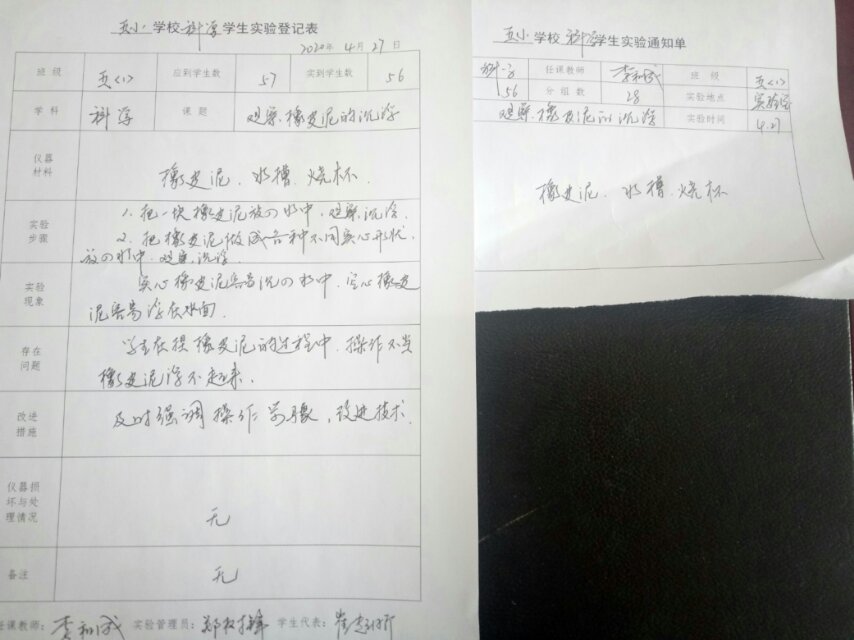 五小学校科学学生实验登记表
2020年4月27日
班级 五<1> 应到学生数 57 实到学生数 56
学科 科学 课题 观察橡皮泥的沉浮
仪器
材料
橡皮泥、水槽、烧杯
实验
步骤
1、把一块橡皮泥放入水中,观察沉浮.
2、把橡皮泥做成各种不同实心形状,
放入水中,观察沉浮.
实验
现象
实心橡皮泥容易沉入水中,空心橡皮
泥容易浮在水面.
存在
问题
学生在捏橡皮泥的过程中,操作不当
橡皮泥浮不起来.
改进
措施
及时强调操作步骤,改进技术.
仪器损
坏与处
理情况
无
备注
无
任课教师:李和成 实验管理员: 学生代表:
五小学校科学学生实验通知单
科学 任课教师 李和成 班级 五<1>
56 分组数 28 实验地点 实验室
观察橡皮泥的沉浮 实验时间 4.27
橡皮泥、水槽、烧杯